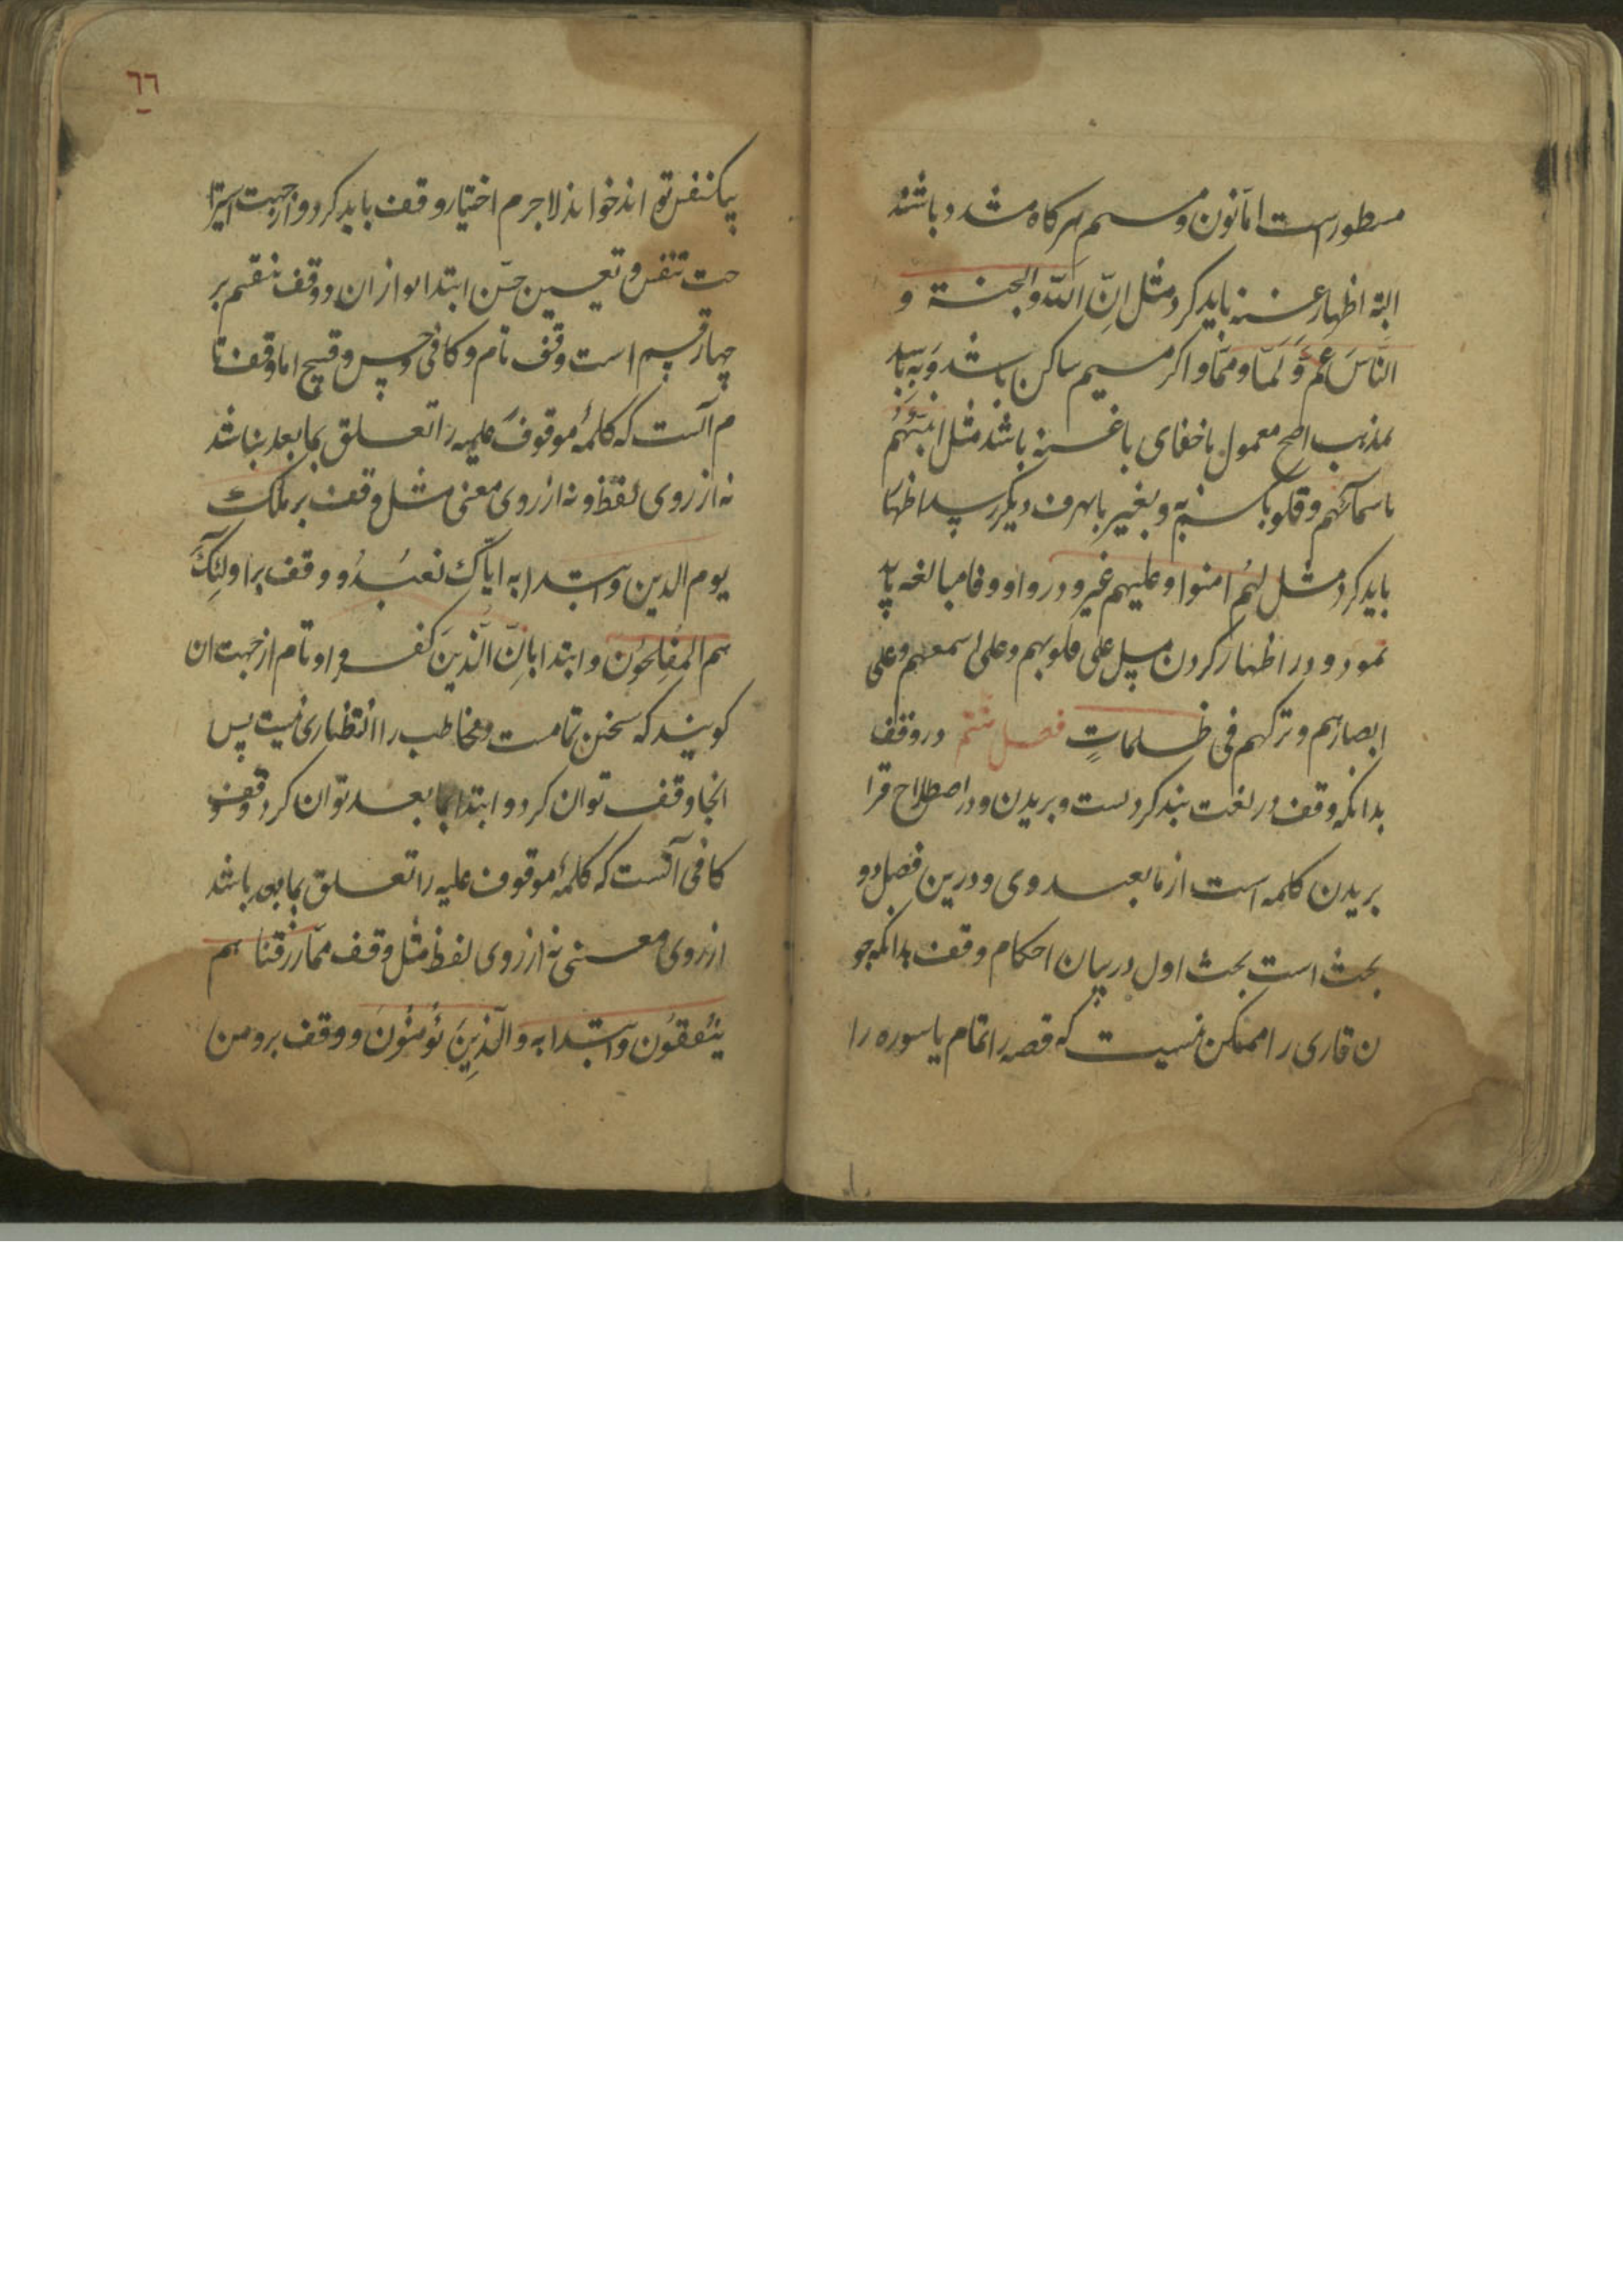 مسطورست اما نون و میم هرکاه مشدد باشند
البته اظهار غنه باید کرد مثل اِنّ الله والجنة و
النّاسَ عَمّ وَ لَمّا و ممّا و اکر میم ساکن باشد و به با
بمذهب اصح معمول باخفای با غنه باشد مثل انبئهُم
باسمآئهم و قلوبهم و بغیر با بهرف دیکر رسد اظهار
باید کرد مثل لهُم امنوا و علیهم غیر و در واو و فا مبالغه باید
نمود و در اظهار کردن مثل علی قلوبهم و علی سمعهم و علی
ابصارهم و ترکهم فی ظلماتٍ فصل در وقف
بدانکه وقف در لغت بند کردنست و بریدن و در اصطلاح قرا
بریدن کلمه است از ما بعد وی و درین فصل دو
بحث است بحث اول در بیان احکام وقف بدانکه چو
ن قاری را ممکن نیست که قصه را تمام یا سوره را
٦٦
بیکنفس تواند خواند لاجرم اختیار وقف باید کرد و از جهت استرا
حت تنفس و تعیین حسن ابتدا بو ازان و وقف منقسم بر
چهار قسم است وقف تام و کافی و حسن و قبیح اما وقف تا
م آنست که کلمهٔ موقوف علیه را تعلق بما بعد نباشد
نه از روی لفظ و نه از روی معنی مثل وقف بر ملک
یوم الدین و ابتدا به ایاک نعبُدُ و وقف بر اولئک
هم المفلحون و ابتدا باِنّ الّذین کفروا و تام از جهت ان
کویند که سخن تمامست و مخاطب را انتظاری نیست پس
انجا وقف توان کرد و ابتدا بما بعد توان کرد و وقف
کافی آنست که کلمهٔ موقوف علیه را تعلق بما بعد باشد
از روی معنی نه از روی لفظ مثل وقف ممّا رزقنا هم
ینفقون و ابتدا به والّذین یؤمنون و وقف بر و من